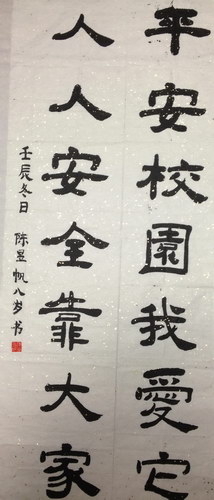 平安校園我愛它
人人安全靠大家
壬辰冬日 陈昱帆八岁书